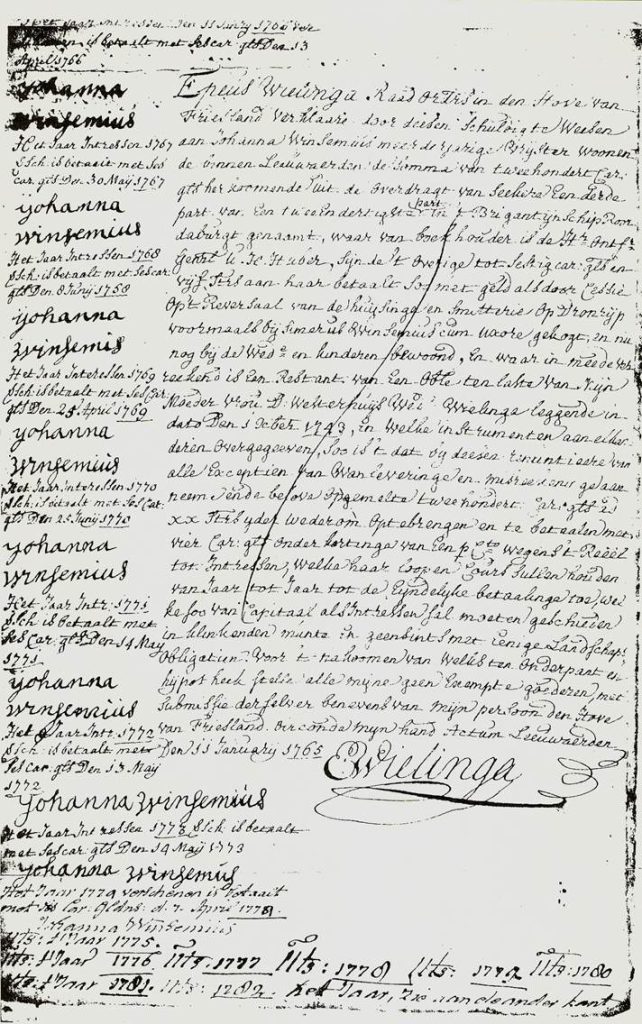 Het Jaar Intressen Den 11 Janry 1766 ver
is betaalt met Ses car: gls Den 13
April 1766
Johanna
Winsemius
Het Jaar Intressen 1767
Sch: is betaalt met Ses
Car: gls Den 30 Maij 1767
Johanna
Winsemius
Het Jaar Intressen 1768
Sch: is betaalt met Ses car:
gls Den 8 Junij 1768
Johanna
Winsemis
Het Jaar Intressen 1769
Sch: is betaalt met Ses Car:
gls Den 25 April 1769
Johanna
Winsemius
Het Jaar Intressen 1770
Sch: is betaalt met Ses Car:
gls Den 25 Junij 1770
Johanna
Winsemius
Het Jaar Intr: 1771
Sch: is betaalt met
Ses Car: gls Den 14 Maij
1771
Johanna
Winsemius
Het Jaar Intr: 1772
Sch: is betaalt met
Ses car: gls Den 13 Maij
1772
Johanna Winsemius
Het Jaar Intressen 1773 Sch: is betaalt
met Ses car: gls Den 14 Maij 1773
Johanna Winsemius
Het Jaar 1774 verschenen is betaalt
met Car: Gldns: d: 7 April
Johanna Winsemius
Jaar 1775.
Jaar 1776 1777 1778 1779 1780
Jaar 1781 1782 het Jaar, Zie aan de ander kant
Epeus Wielinga Raad Ordris in den Hove van
Friesland Verklaare door deesen Schuldig te Weesen
aan Johanna Winsemius meerderjarige Vrijster Woonen
de binnen Leeuwaerden de Somma van twee hondert Car:
gls her koomende uit de Overdragt van Seekere Een derde
part van Een twee En dertigste part in 't Brigantijn Schip Rom
daburgt genaamt, waar van boek houder is de Hr Ontf:
Huber, Sijnde 't Overige tot Sestig car: gls en
vijf Strs aan haar betaalt Soo met geld als door Cessie
Op 't Reversaal van de huijsinge en Smitterie Op Dronrijp
voormaals bij Simerius Winsemius cum uxore gekogt, en nu
nog bij de Wede en kinderen bewoond, En waar in meede ver
reekend is Een Restant van Een Oble ten laste van Mijn
Moeder Vrou D: Westerhuijs Wede Wielinga leggende in
dato Den 1 Octber 1743, en Welke instrumenten aan elke
deren Overgegeven, Soo is 't dat bij deesen renuntieere van
alle Exceptien van Wan leveringe en misreekens gelaan
neem Ende belove Opgemelte twee hondert Car: gls
xx Str bijdef wederom Op te brengen en te betaalen met
vier Car: gls onder kortinge van Een p Cto wegens 't Reëel
tot Intressen, Welke haar loop en Cours Sullen houden
van Jaar tot Jaar tot de Eijndelijke betaalinge toe, Wel
ke Soo van Capitaal als Intressen Sal moeten geschieden
in klinkenden munte en geen Sints met Eenige Landschaps
Obligatien. Voor 't nakoomen van Welks ten Onderpant en
hijpotheek Stelle alle mijne geen Exempte goederen, met
Submissie der Selver benevens van Mijn persoon den Hove
van Friesland. Oirconde mijn hand Actum Leeuwaerden
Den 11 January 1765
EWielinga